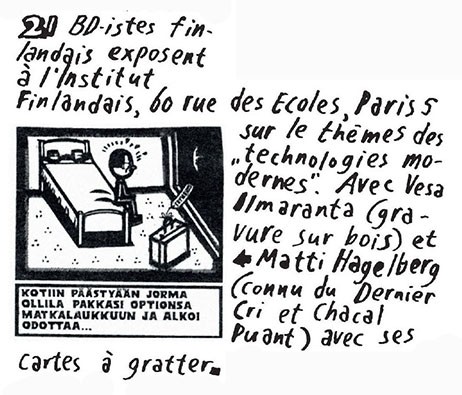 21 BD-istes fin-
landais exposent
à l'Institut
Finlandais, 60 rue des Ecoles, Paris 5
sur le thèmes des
„technologies mo-
dernes". Avec Vesa
Ilmaranta (gra-
vure sur bois) et
Matti Hagelberg
(connu du Dernier
Cri et Chacal
Puant) avec ses
cartes à gratter.
KOTIIN PÄÄSTYÄÄN JORMA
OLLILA PAKKASI OPTIONSA
MATKALAUKKUUN JA ALKOI
ODOTTAA...